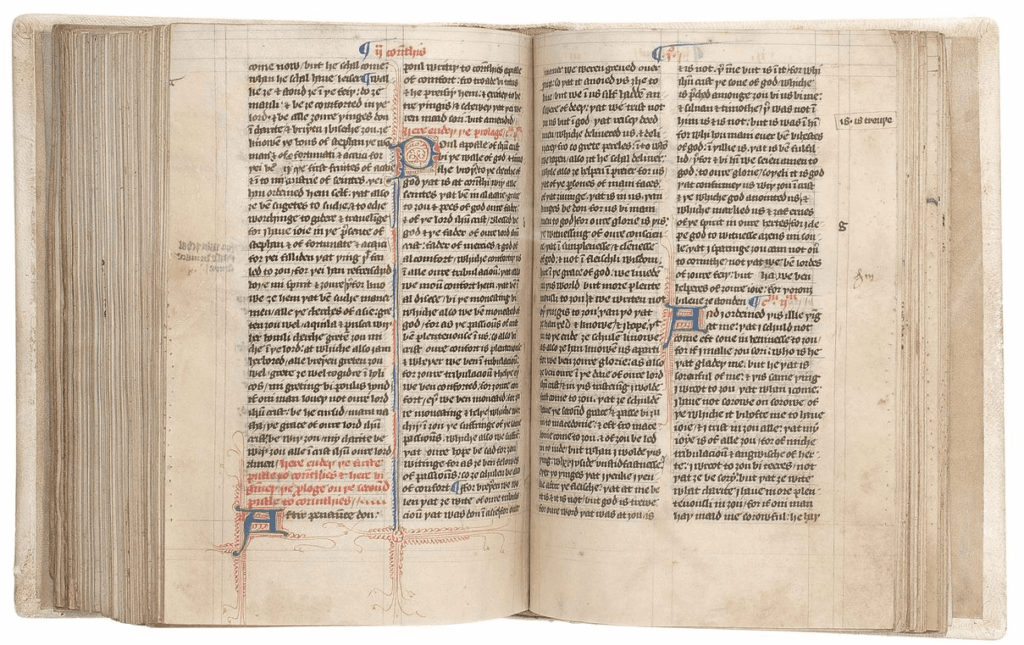 ij corinthis
come now / but he schal come
whan he schal haue leiser ¶ wal
ke ȝe & stond ȝe in ye feiy : do ȝe
manli : & be ȝe comforted in ye
lord : & be alle ȝoure yinges don
in charite & briyeren i bische ȝou ȝe
knowe ye hous of stephan
& of fortunati & acaici for
yei be ye first fruites of acaie
& in to mynisterie of seintes yei
han ordeined hem self . yat also
ȝe be sugetes to suche / & to eche
worchinge to gidere & traueilinge
for i haue ioie in ye presence of
stephan & of fortunate & acaici
for yei filliden yat ying yat
led to ȝou / for yei han refreischid
boye my spirit & ȝoure / yer for kno
we ȝe hem yat ben suche maner
men / alle ye chirches of asie gre
ten ȝou wel / aquila & prisca wiy
her homli chirche grete ȝou my
che in ye lord : at whiche also i am
herbored / alle breyeren greten ȝou
wel / grete ȝe wel to gidre in holi
cos / my greting bi poulis hond
if oni man louey not oure lord
ihū crist / be he cursid / maranna
tha / ye grace of oure lord ihū
crist be wiy ȝou / my charite be
wiy ȝou alle in crist ihū oure lord
amen / here endey ye firste
pistle to corinthies & here bi
ginney ye prologe on ye secound
pistle to corinthies
Aftir penaunce don :
poul writey to corinthies a pistle
of comfort : fro troade bi titus
& he preisiy hem : & excitey to bet
tre yingis / & schewey yat yei we
ren maad sori . but amendid
here endey ye prologe
Poul apostle of ihū crist
bi ye wille of god & timo
the broyer / to ye chirche of
god yat is at corinthi wiy alle
seintes yat ben in al acaie : grace
to ȝou & pees of god oure fader
& of ye lord ihū crist / blessid be
god & ye fader of oure lord ihū
crist : fader of mercies & god of
al comfort / whiche comfortiy us
in alle oure tribulacioun : yat also
we moun comfort hem yat ben in
al disese / bi ye monesting bi
whiche also we ben monestid of
god / for as ye passiouns of crist
ben plenteuouse in us : so also bi
crist oure comfort is plenteuouse
& wheyer we ben in tribulacioun :
for ȝoure tribulacioun & helye
we ben comforted : for ȝoure com
fort / eyer we ben monestid : for ȝou
re monesting & helye / whiche wor
chey in ȝou ye suffringe of ye same
passiouns . whiche also we suffren
yat oure hope be sad for ȝou
witinge for as ȝe ben felawes
of passiouns . so ȝe schulen be also
of comfort ¶ for breyeren we wo
len yat ȝe wite of oure tribula
cioun yat was don in asie / for ouer
maner we weren greued ouer
miȝt : so yat it anoied us ȝhe to
liue / but we in us silf hadde an
swere of deey : yat we trist not
in us but in god . yat reisey deed
men / whiche deliuered us & deli
uerey fro so grete pereles : in to whom
we hopen also ȝit he schal deliuer
while also ȝe helpen in preier for us
yat of ye persones of mani faces
of yat ȝiuinge . yat is in us . yan
kinges be don for us bi mani
men to god / for oure glorie is yis
ye witnessing of oure conscien
ce yat in simplenesse & clennesse
of god : & not in fleischli wisdom .
but in ye grace of god . we liueden
in yis world but more plente
uously to ȝou / & we writen not
oyer yinges to ȝou yan yo yat
ȝe han red & knowe / & i hope yat
in to ye ende ȝe schulen knowe
as also ȝe han knowe us a parti
for we ben ȝoure glorie : as also
ȝe ben oure in ye daie of oure lord
ihū crist / & in yis tristing i wolde
first come to ȝou . yat ȝe schulde
haue ye second grace / & passe bi ȝou
in to macedonie & eft fro mace
donie come to ȝou . & of ȝou be led
in to iude / but whan i wolde yis
ying / wheyer i vside unstidfastnesse
eyer yo yinges yat i yenke i yen
ke after ye fleische / yat at me be
it is & it is not / but god is trewe
for oure word yat was at ȝou / is
& is not . yer inne but is in it / for whi
ihū crist ye sone of god / whiche
is preched amonge ȝou bi us bi me :
& siluan & timothe / yer was not in
him is & is not : but is was in hi
for whi hou mani euer ben bihestes
of god : in yilke is . yat is be fulfil
lid / yerfor & bi him we seien amen to
god : to oure glorie / soyely it is god
yat confermey us wiy ȝou in crist
& ye whiche god anointed us : &
whiche markid us & ȝaf ernes
of ye spirit in oure hertes / for i cle
pe god to witnesse aȝens my sou
le / yat i sparinge ȝou cam not ouer
to corinthe / not yat we be lordes
of ȝoure feiy : but we ben
helperes of ȝoure ioie : for yorouȝ
bileue ȝe stonden ¶ cm ijm
And i ordeined yis ilke ying
at me : yat i schuld not
come eft sone in heuinesse to ȝou
for if i make ȝou sori : who is he
yat gladey me . but he yat is
sorouful of me : & yis same ying
i wroot to ȝou . yat whan i come .
i haue not sorowe on sorowe . of
ye whiche it bihofte me to haue
ioye / & i trist in ȝou alle : yat my
ioye is of alle ȝou / for of miche
tribulacioun & angwische of her
te : i wroot to ȝou bi teeres / not
yat ȝe be sory . but yat ȝe wite
what charite i haue more plen
teuousli in ȝou / for if oni man
hay maad me sorouful : he hay
is . is trewye
g